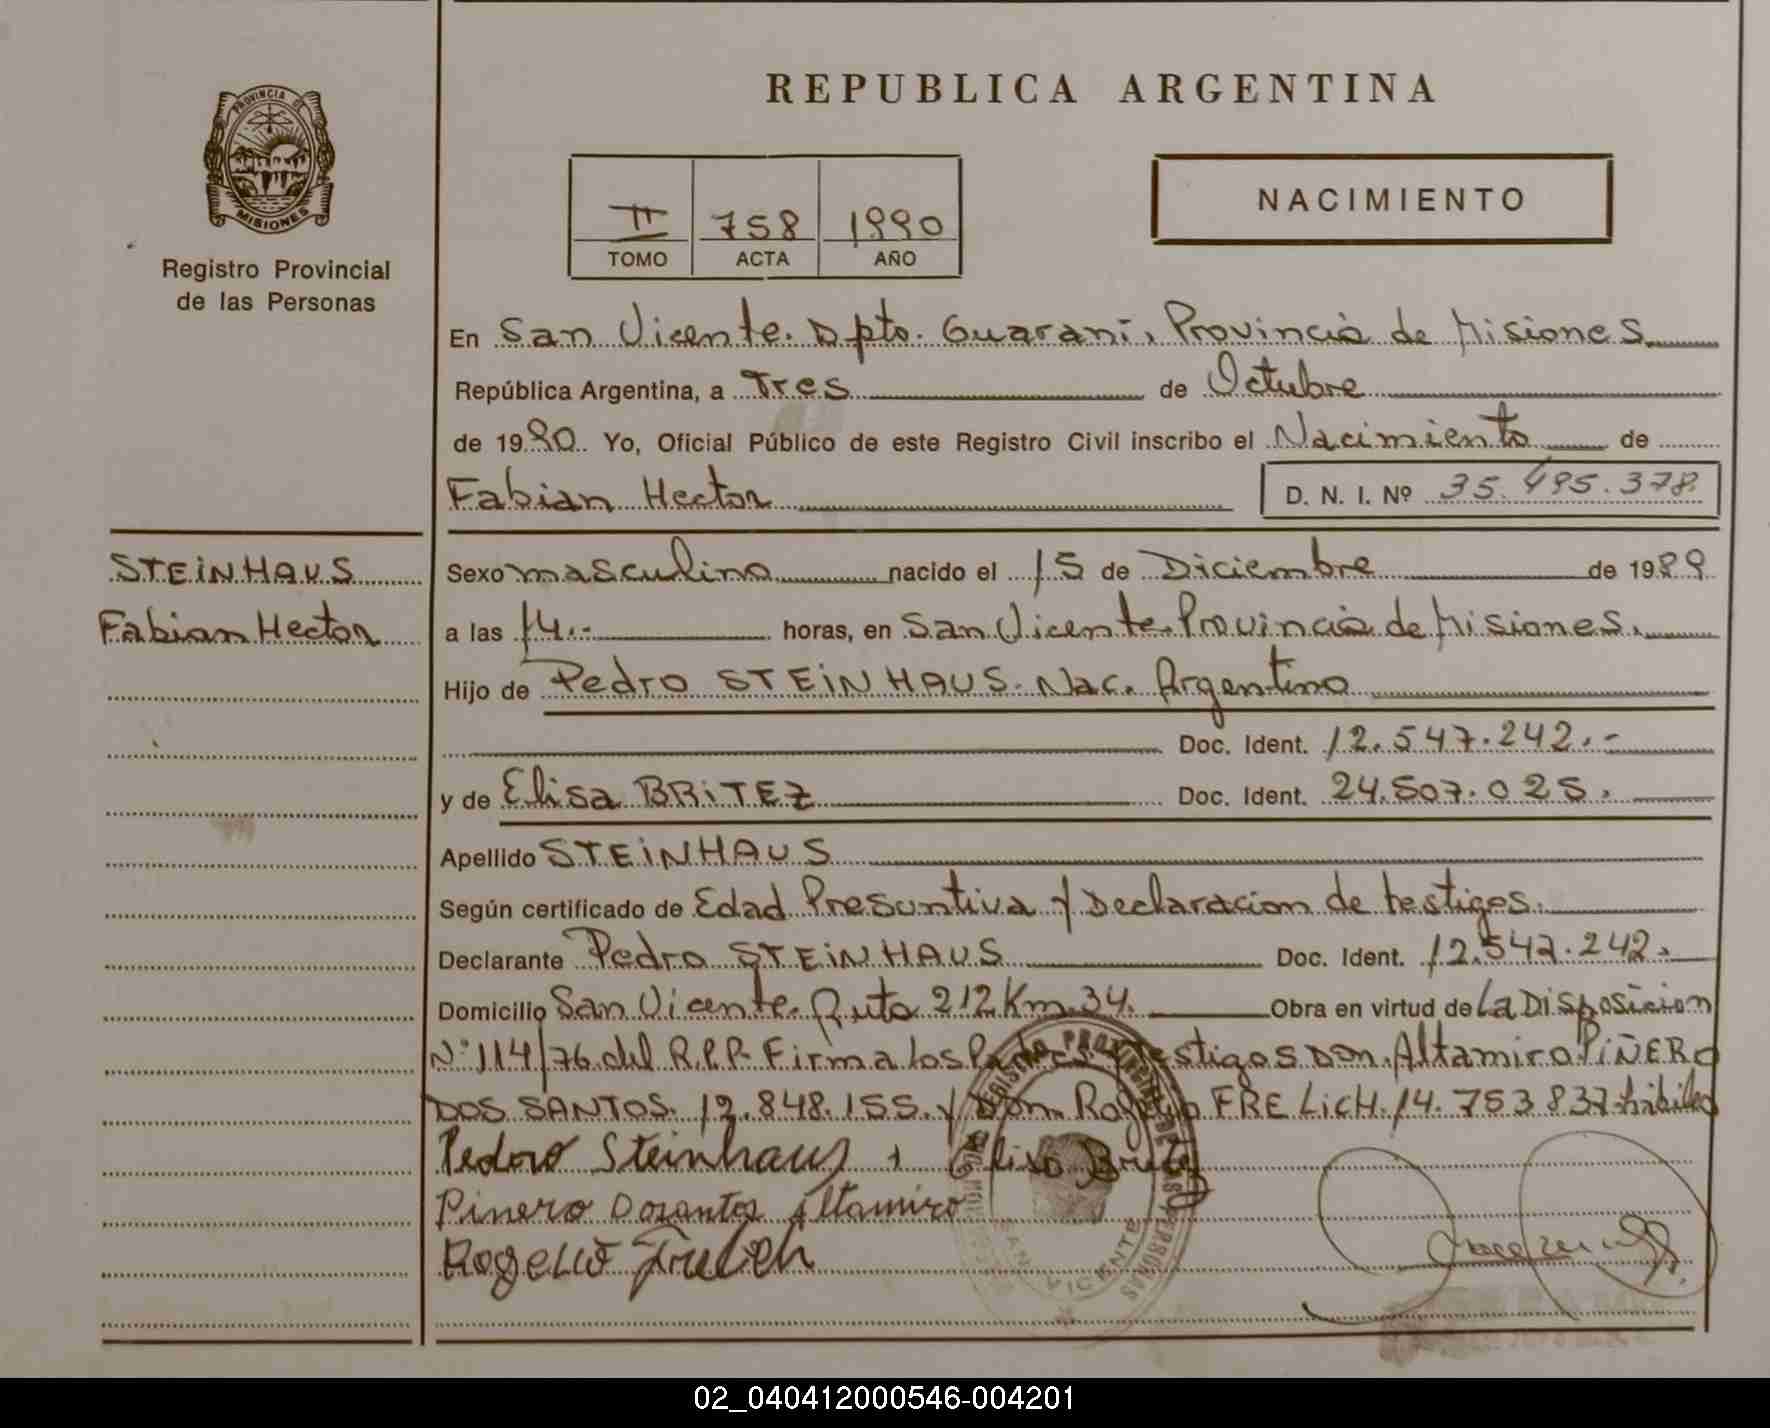 PROVINCIA DE
MISIONES
Registro Provincial
de las Personas
REPUBLICA ARGENTINA
II 758 1990
TOMO ACTA AÑO
NACIMIENTO
En San Vicente. Dpto. Guaraní, Provincia de Misiones
República Argentina, a Tres de Octubre
de 1990. Yo, Oficial Público de este Registro Civil inscribo el Nacimiento de
Fabian Hector D. N. I. Nº 35.495.378
STEiNHAUS
Fabian Hector
Sexo masculino nacido el 15 de Diciembre de 1989
a las 14.- horas, en San Vicente. Provincia de Misiones.
Hijo de Pedro STEiNHAUS. Nac. Argentino
Doc. Ident. 12.547.242.-
y de Elisa BRiTEZ Doc. Ident. 24.507.025.
Apellido STEiNHAUS
Según certificado de Edad Presuntiva y Declaracion de testigos.
Declarante Pedro STEiNHAUS Doc. Ident. 12.547.242.
Domicilio San Vicente. Ruta 212 Km. 34. Obra en virtud de La Disposicion
Nº 114/76 del R.P.P. Firma los Padres y testigos Don. Altamiro PiÑERO
DOS SANTOS. 12.848.155. y Don. Rogelio FRELicH. 14.753837 hábiles
Pedro Steinhaus Elisa Britez
Pinero Dosantos Altamiro
Rogelio Frelich
REGISTRO PROVINCIAL DE LAS PERSONAS
SAN VICENTE
02_040412000546-004201